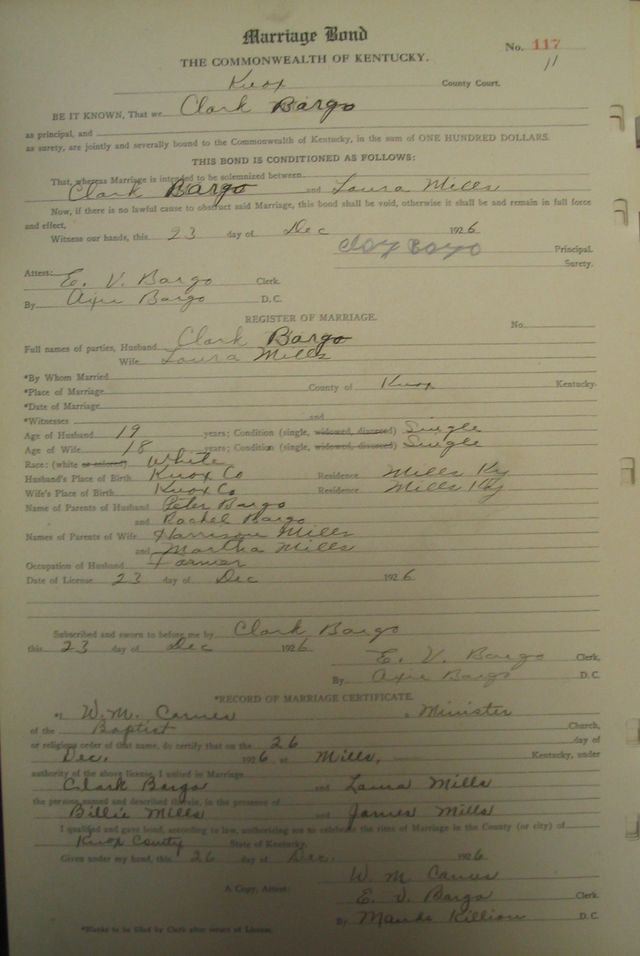 Marriage Bond
THE COMMONWEALTH OF KENTUCKY.
No. 117
11
Knox County Court.
BE IT KNOWN, That we Clark Bargo
as principal, and
as surety, are jointly and severally bound to the Commonwealth of Kentucky, in the sum of ONE HUNDRED DOLLARS.
THIS BOND IS CONDITIONED AS FOLLOWS:
That, whereas Marriage is intended to be solemnized between
Clark Bargo and Laura Mills
Now, if there is no lawful cause to obstruct said Marriage, this bond shall be void, otherwise it shall be and remain in full force
and effect.
Witness our hands, this 23 day of Dec 1926
Principal.
Surety.
Attest: E. V. Bargo Clerk.
By Axie Bargo D.C.
REGISTER OF MARRIAGE.
No.
Full names of parties, Husband Clark Bargo
Wife Laura Mills
*By Whom Married
*Place of Marriage County of Knox Kentucky.
*Date of Marriage
*Witnesses and
Age of Husband 19 years; Condition (single, widowed, divorced) Single
Age of Wife 18 years; Condition (single, widowed, divorced) Single
Race: (white or colored) White
Husband's Place of Birth Knox Co Residence Mills Ky
Wife's Place of Birth Knox Co Residence Mills Ky
Name of Parents of Husband Peter Bargo
and Rachel Bargo
Names of Parents of Wife Harrison Mills
and Martha Mills
Occupation of Husband Farmer
Date of License 23 day of Dec 1926
Subscribed and sworn to before me by Clark Bargo
this 23 day of Dec 1926
E. V. Bargo Clerk,
By Axie Bargo D.C.
*RECORD OF MARRIAGE CERTIFICATE.
*I W. M. Carnes a Minister
of the Baptist Church,
or religious order of that name, do certify that on the 26 day of
Dec. 1926 at Mills, Kentucky, under
authority of the above license, I united in Marriage
Clark Bargo and Laura Mills
the persons named and described therein, in the presence of
Billie Mills and James Mills
I qualified and gave bond, according to law, authorizing me to celebrate the rites of Marriage in the County (or city) of
Knox County State of Kentucky.
Given under my hand, this 26 day of Dec. 1926
W. M Carnes
A Copy, Attest: E. V. Bargo Clerk.
By Maude Killion D.C.
*Blanks to be filed by Clerk after return of License.